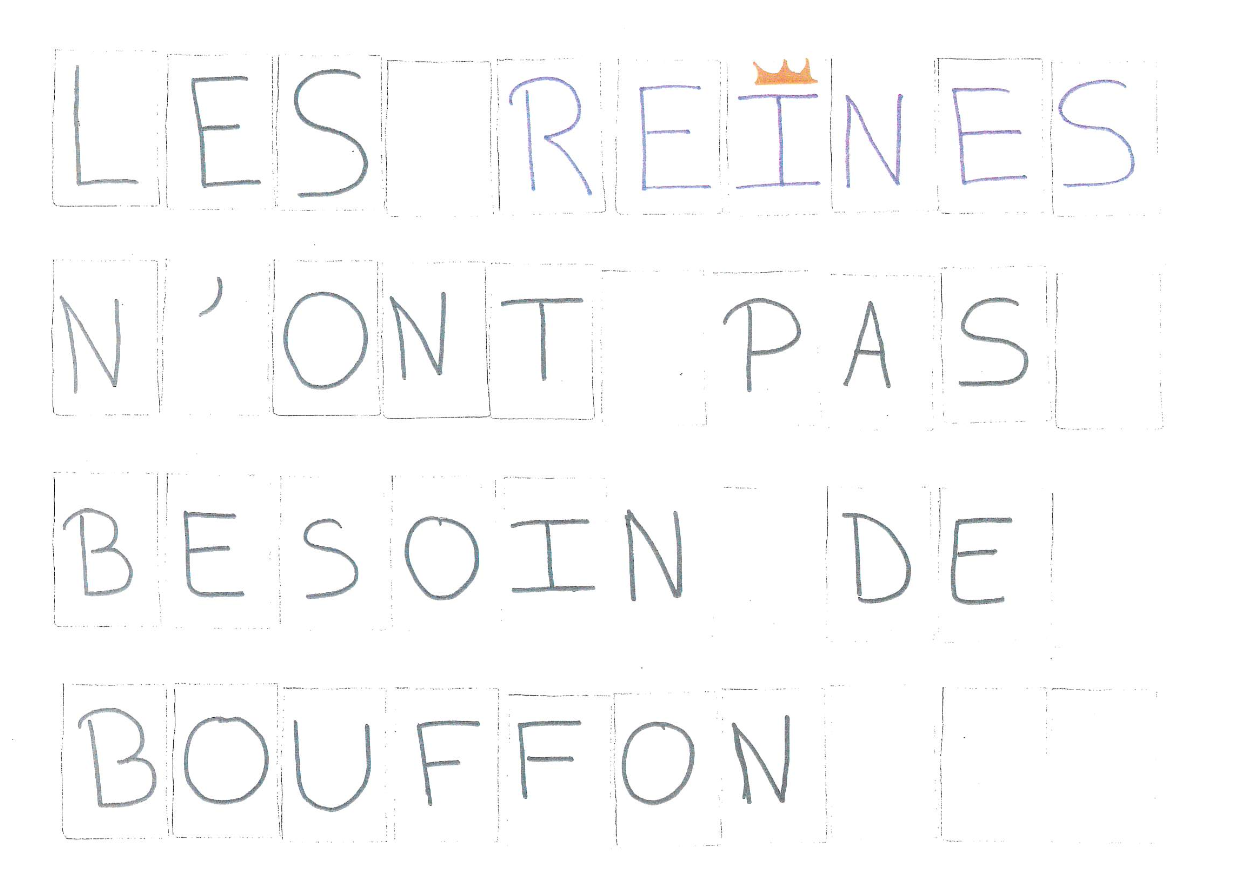 LES REINES
N'ONT PAS
BESOIN DE
BOUFFON